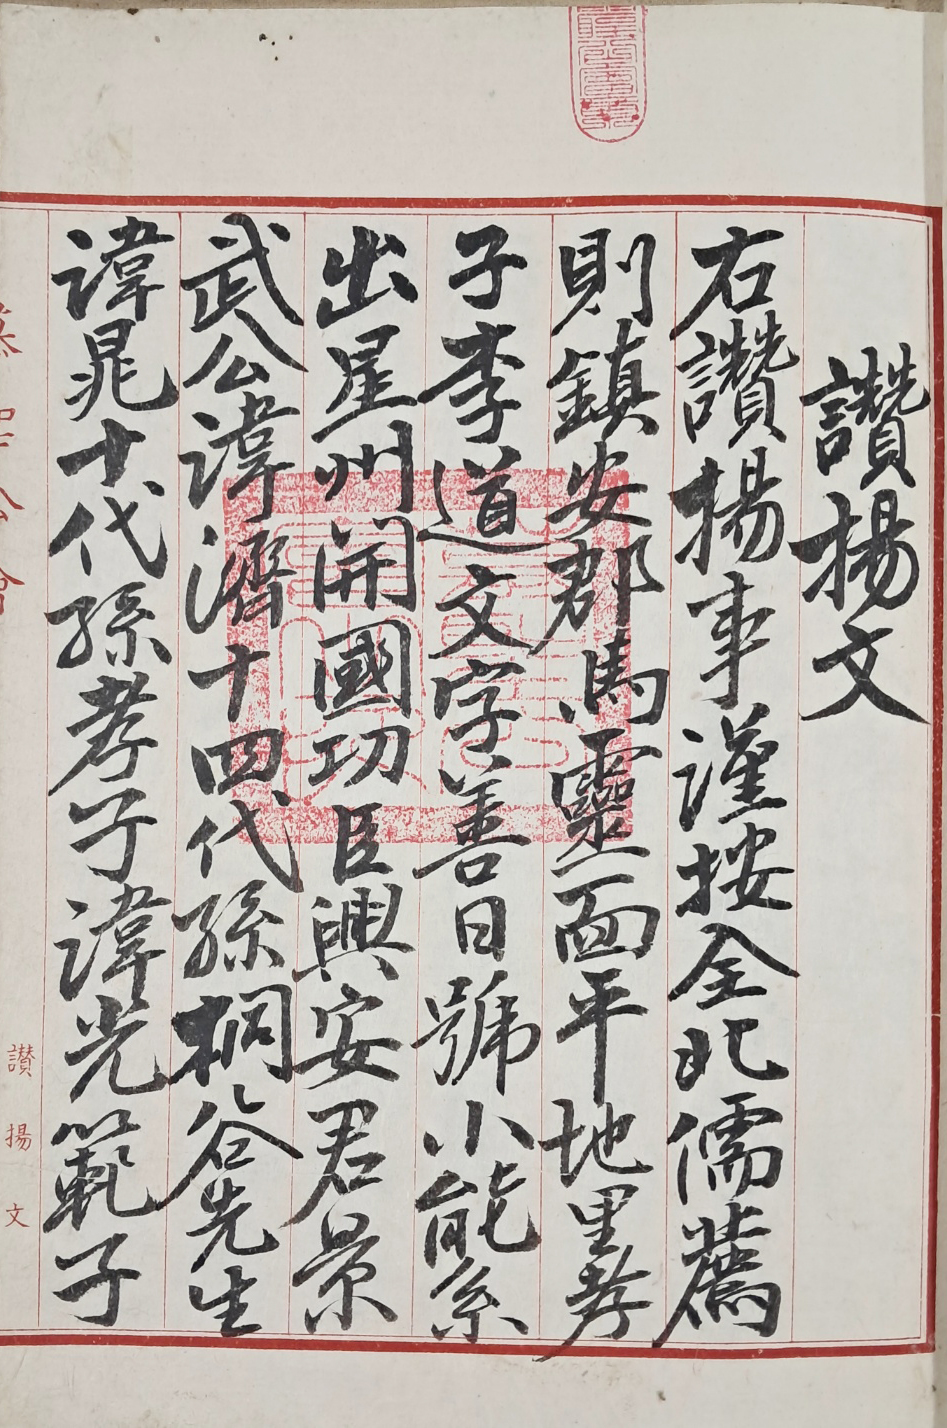 讚揚文
右讚揚事謹按全北儒薦
則鎮安郡馬靈面平地里孝
子李道文字善日號小能系
出星州開國功臣興安君景
武公諱濟十四代孫桐谷先生
諱晁十代孫孝子諱光範子
讃揚文